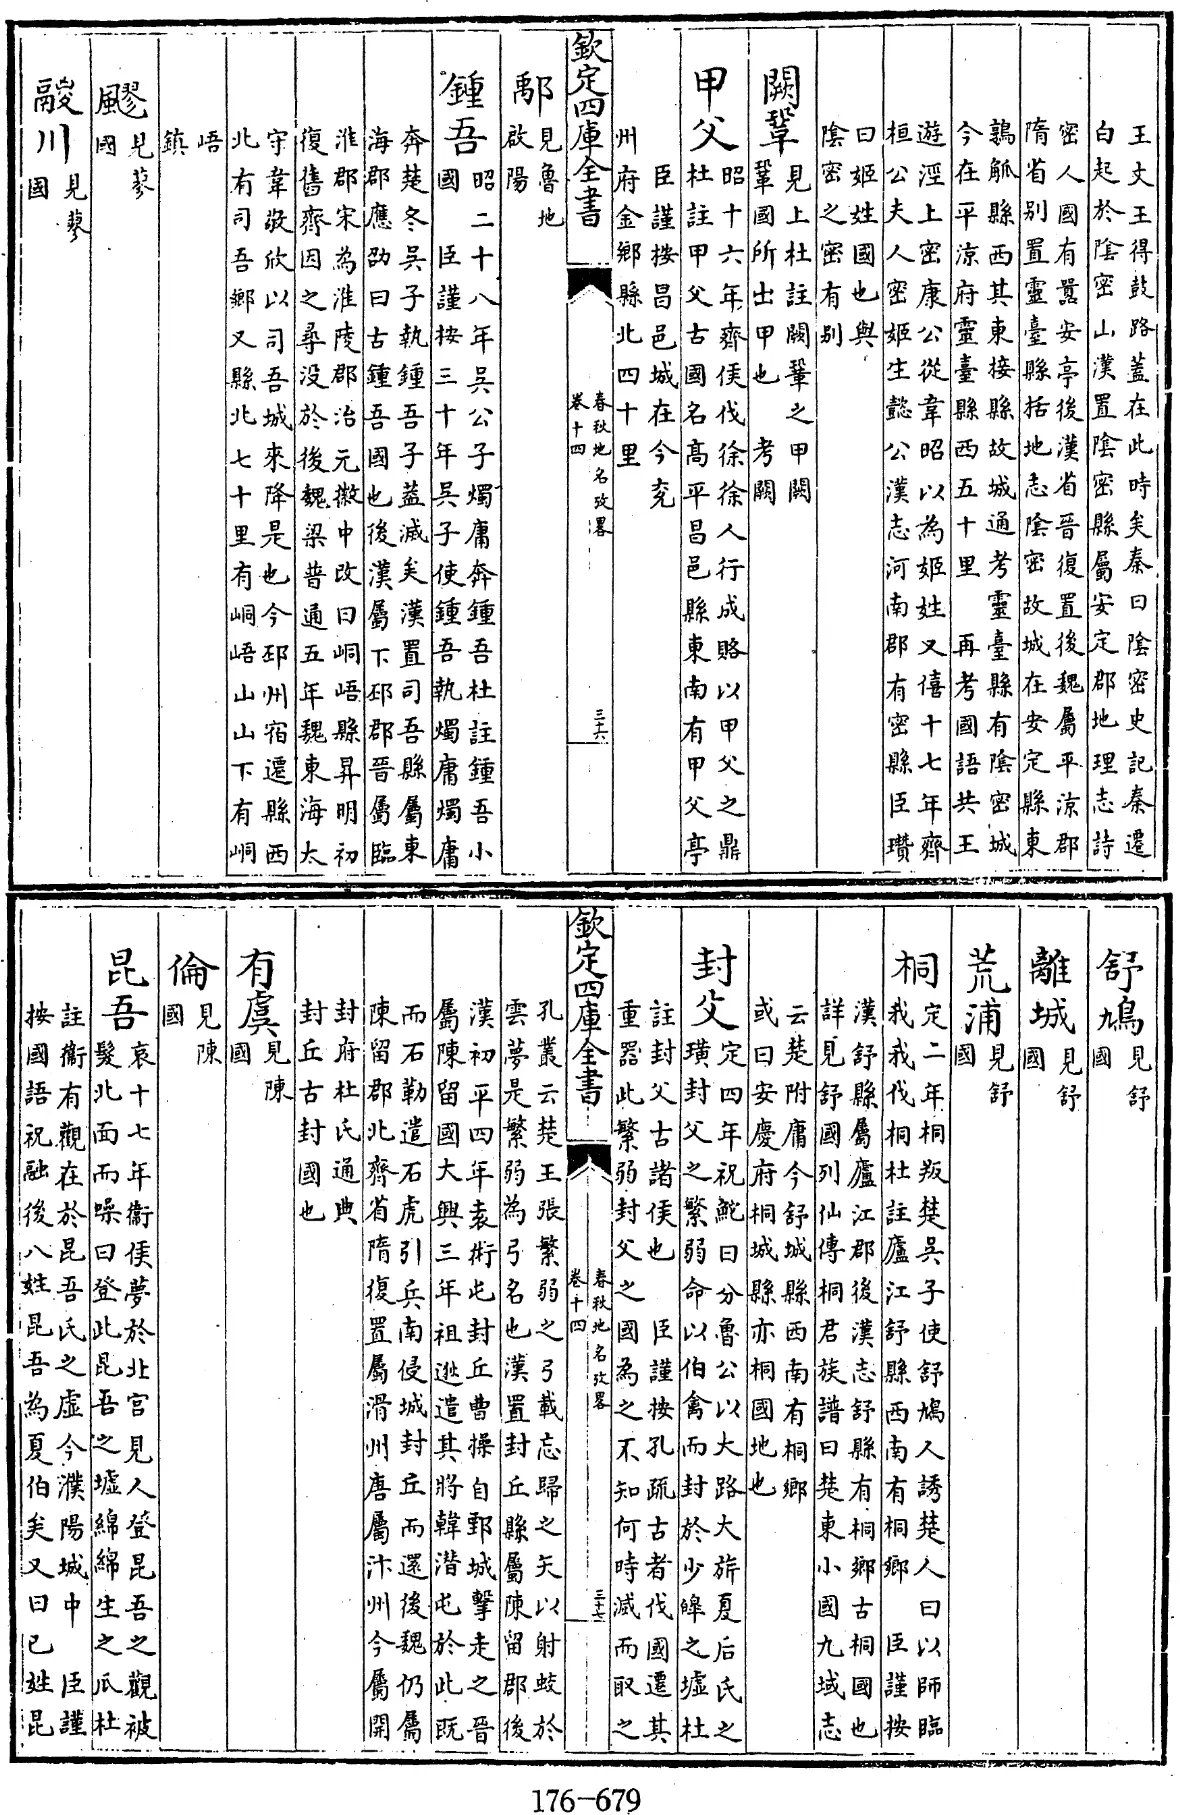 王文王得鼓路蓋在此時矣秦曰陰密史記秦遷
白起於陰密山漢置陰密縣屬安定郡地理志詩
密人國有嚻安亭後漢省晉復置後魏屬平涼郡
隋省别置靈臺縣括地志陰密故城在安定縣東
鶉觚縣西其東接縣故城通考靈臺縣有陰密城
今在平涼府靈臺縣西五十里 再考國語共王
遊涇上密康公從韋昭以為姬姓又僖十七年齊
桓公夫人密姬生懿公漢志河南郡有密縣臣瓚
曰姬姓國也與
陰密之密有别
闕鞏
見上杜註闕鞏之甲闕
鞏國所出甲也 考闕
甲父
昭十六年齊侯伐徐徐人行成賂以甲父之鼎
杜註甲父古國名高平昌邑縣東南有甲父亭
臣謹按昌邑城在今兖
州府金鄉縣北四十里
欽定四庫全書
春秋地名攷畧
卷十四
三十六
鄅
見魯地
啟陽
鍾吾
昭二十八年吳公子燭庸奔鍾吾杜註鍾吾小
國 臣謹按三十年吳子使鍾吾執燭庸燭庸
奔楚冬吳子執鍾吾子蓋滅矣漢置司吾縣屬東
海郡應劭曰古鍾吾國也後漢屬下邳郡晉屬臨
淮郡宋為淮陵郡治元徽中改曰峒峿縣昇明初
復舊齊因之尋没於後魏梁普通五年魏東海太
守韋敬欣以司吾城來降是也今邳州宿遷縣西
北有司吾鄉又縣北七十里有峒峿山山下有峒
峿
鎮
飂
見蓼
國
鬷川
見蓼
國
舒鳩
見舒
國
離城
見舒
國
荒浦
見舒
國
桐
定二年桐叛楚吳子使舒鳩人誘楚人曰以師臨
我我伐桐杜註廬江舒縣西南有桐鄉 臣謹按
漢舒縣屬廬江郡後漢志舒縣有桐鄉古桐國也
詳見舒國列仙傳桐君族譜曰楚東小國九域志
云楚附庸今舒城縣西南有桐鄉
或曰安慶府桐城縣亦桐國地也
封父
定四年祝鮀曰分魯公以大路大旂夏后氏之
璜封父之繁弱命以伯禽而封於少皞之墟杜
註封父古諸侯也 臣謹按孔疏古者伐國遷其
重器此繁弱封父之國為之不知何時滅而取之
欽定四庫全書
春秋地名攷畧
卷十四
三十七
孔叢云楚王張繁弱之弓載忘歸之矢以射蛟於
雲夢是繁弱為弓名也漢置封丘縣屬陳留郡後
漢初平四年袁術屯封丘曹操自鄄城擊走之晉
屬陳留國大興三年祖逖遣其將韓潛屯於此既
而石勒遣石虎引兵南侵城封丘而還後魏仍屬
陳留郡北齊省隋復置屬滑州唐屬汴州今屬開
封府杜氏通典
封丘古封國也
有虞
見陳
國
倫
見陳
國
昆吾
哀十七年衞侯夢於北宮見人登昆吾之觀被
髮北面而噪曰登此昆吾之墟綿綿生之瓜杜
註衞有觀在於昆吾氏之虛今濮陽城中 臣謹
按國語祝融後八姓昆吾為夏伯矣又曰己姓昆
176-679